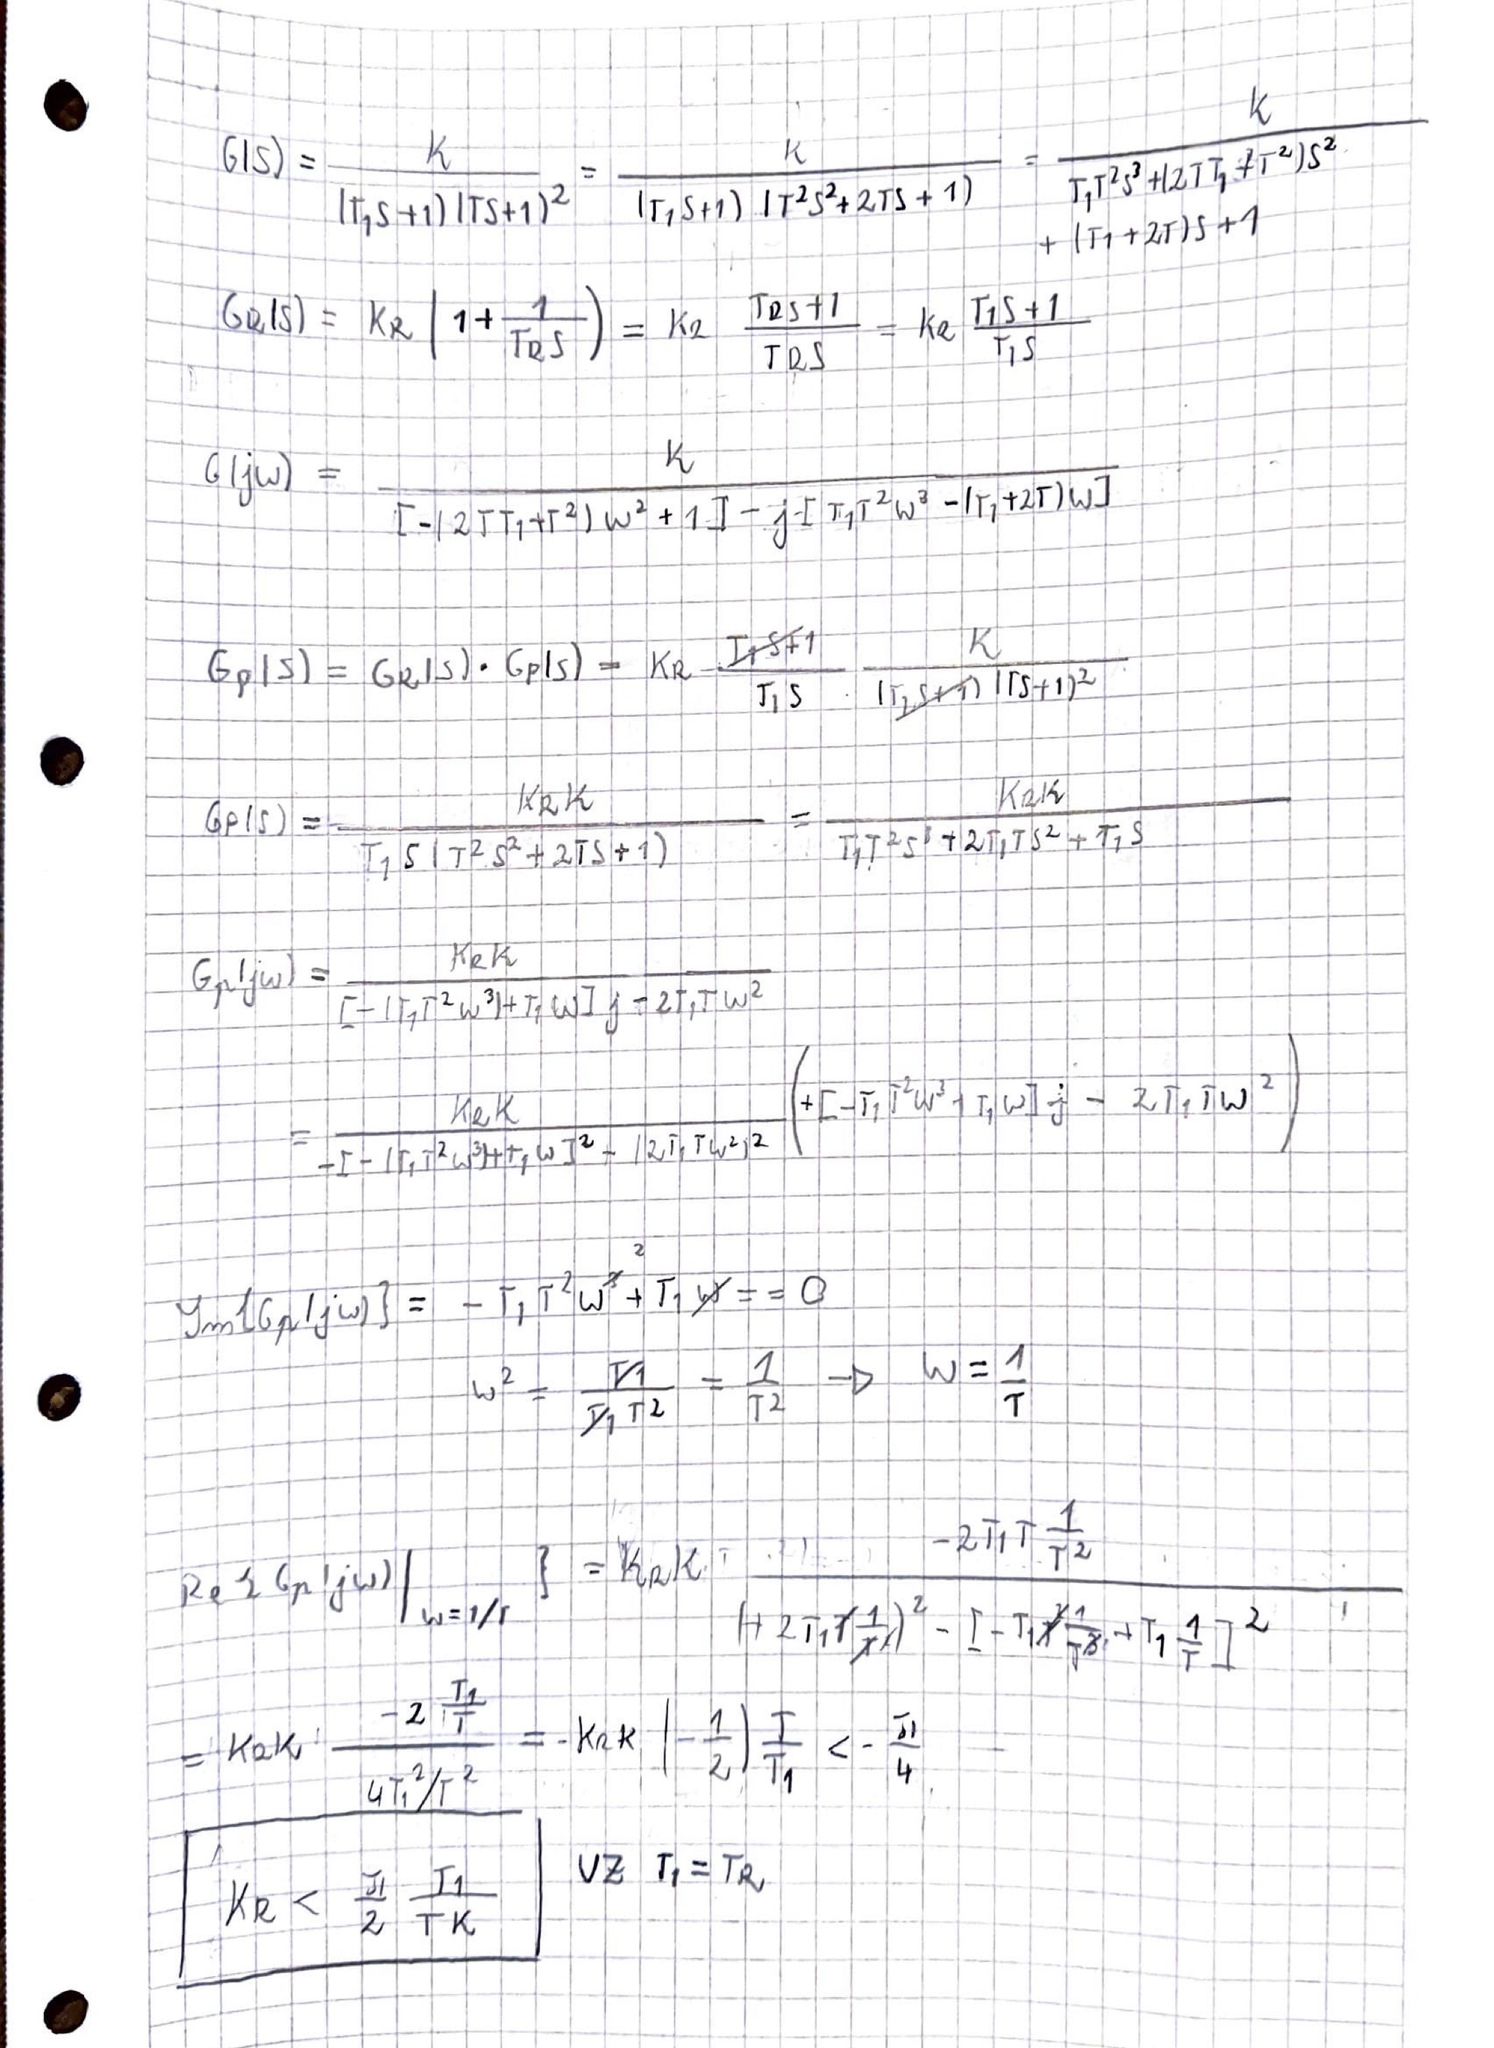 G(S) = K / (T₁S+1)(TS+1)² = K / (T₁S+1)(T²S²+2TS+1) = K / T₁T²S³+(2TT₁+T²)S² + (T₁+2T)S+1
GR(S) = KR (1 + 1/TRS) = KR TRS+1 / TRS = KR T₁S+1 / T₁S
G(jω) = K / [-(2TT₁+T²)ω²+1] - j·[T₁T²ω³-(T₁+2T)ω]
Gp(S) = GR(S)·Gp(S) = KR T₁S+1 / T₁S · K / (T₁S+1)(TS+1)²
Gp(S) = KRK / T₁S(T²S²+2TS+1) = KRK / T₁T²S³+2T₁TS²+T₁S
Gp(jω) = KRK / [-(T₁T²ω³)+T₁ω]j-2T₁Tω²
= KRK / -[-(T₁T²ω³)+T₁ω]²-(2T₁Tω²)² (+[-T₁T²ω³+T₁ω]j - 2T₁Tω²)
Im{Gp(jω)} = -T₁T²ω²+T₁ = = 0
ω² = T1 / T₁T² = 1/T² → ω = 1/T
Re{Gp(jω)|ω=1/T} = KRK · -2T₁T 1/T² / (+2T₁T(1/T²))² - [-T₁T² 1/T³ + T₁ 1/T]²
= KRK · -2 T₁/T / 4T₁²/T² = -KRK (-1/2) T/T₁ < -π/4
KR < π/2 T₁/TK UZ T₁ = TR